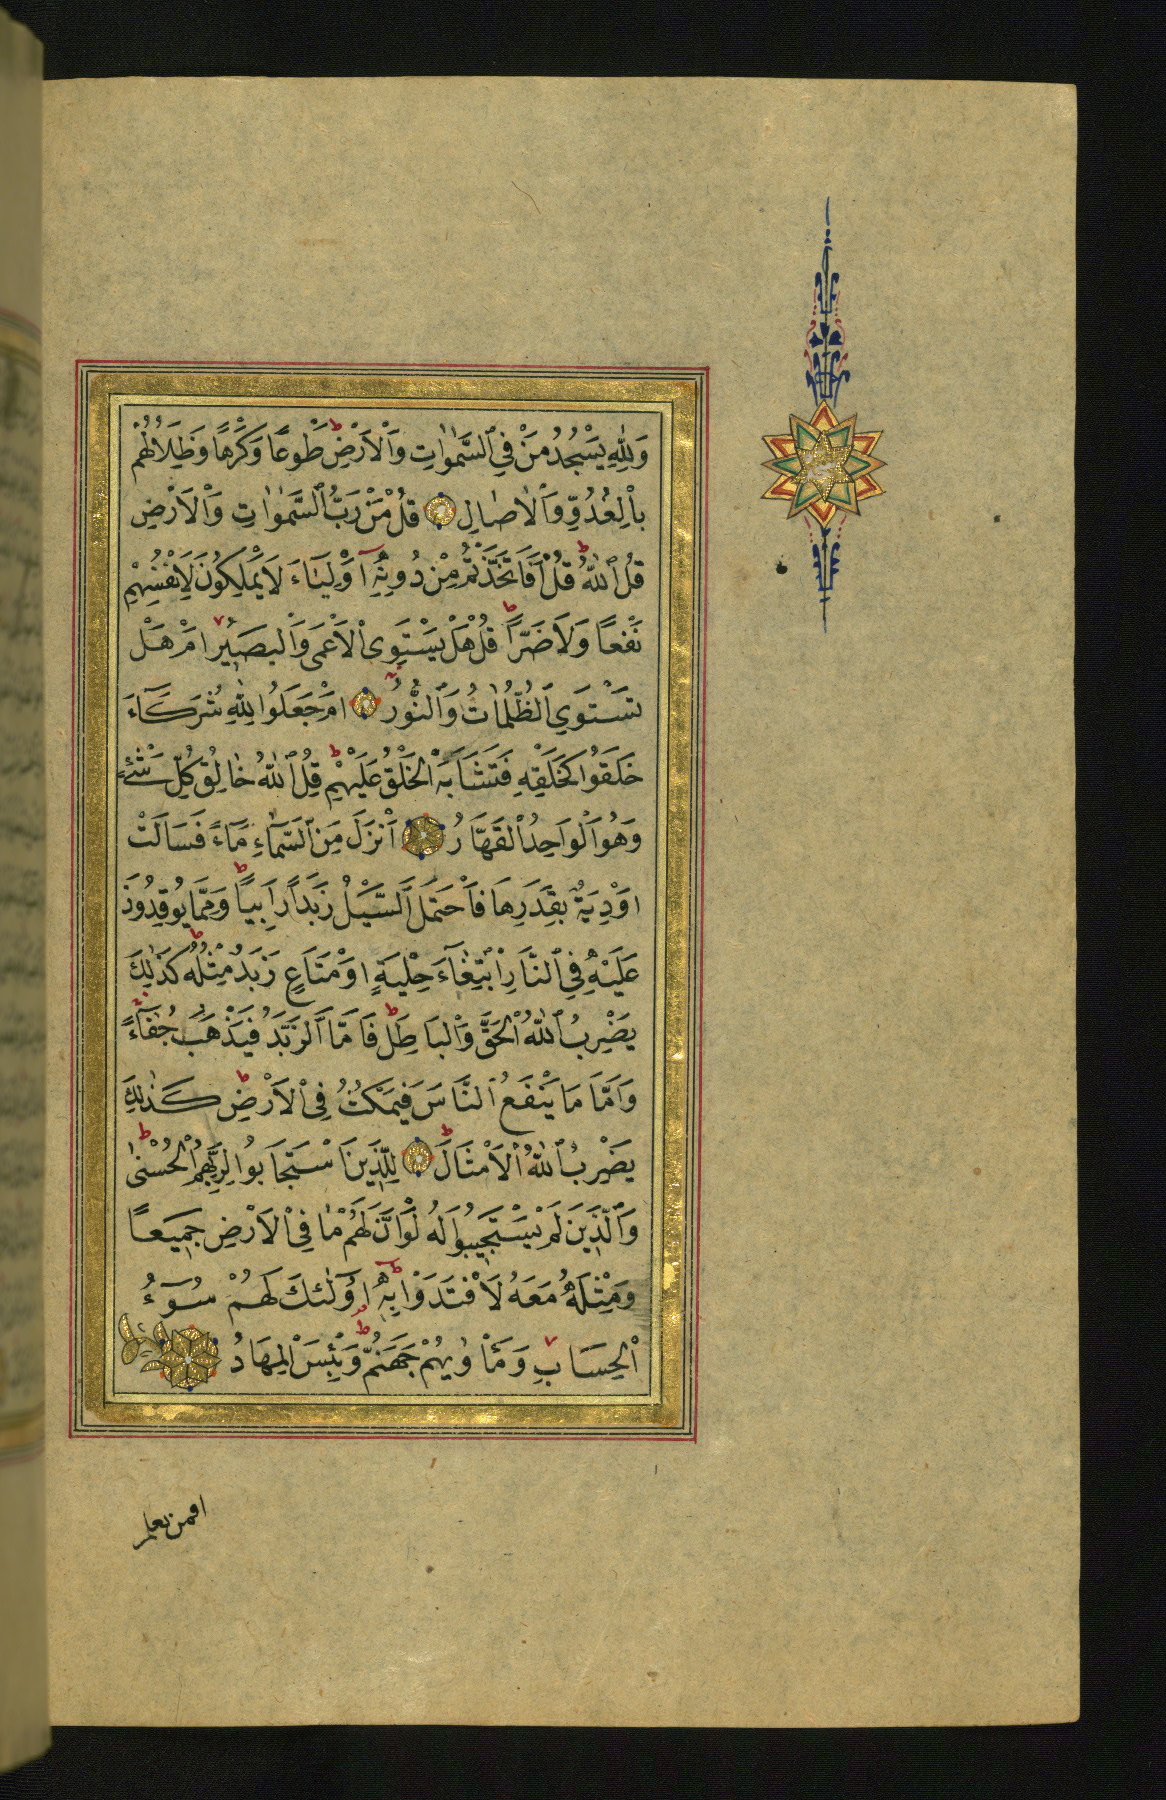 وَلِلّٰهِ يَسْجُدُ مَنْ فِي السَّمٰوَاتِ وَالْاَرْضِ طَوْعًا وَكَرْهًا وَظِلَالُهُمْ
بِالْغُدُوِّ وَالْاٰصَالِ قُلْ مَنْ رَبُّ السَّمٰوَاتِ وَالْاَرْضِ
قُلِ اللّٰهُ قُلْ اَفَاتَّخَذْتُمْ مِنْ دُونِهٖٓ اَوْلِيَاءَ لَا يَمْلِكُونَ لِاَنْفُسِهِمْ
نَفْعًا وَلَا ضَرًّا قُلْ هَلْ يَسْتَوِى الْاَعْمٰى وَالْبَصِيرُ اَمْ هَلْ
تَسْتَوِي الظُّلُمَاتُ وَالنُّورُ اَمْ جَعَلُوا لِلّٰهِ شُرَكَاءَ
خَلَقُوا كَخَلْقِهٖ فَتَشَابَهَ الْخَلْقُ عَلَيْهِمْ قُلِ اللّٰهُ خَالِقُ كُلِّ شَيْءٍ
وَهُوَ الْوَاحِدُ الْقَهَّارُ اَنْزَلَ مِنَ السَّمَاءِ مَاءً فَسَالَتْ
اَوْدِيَةٌ بِقَدَرِهَا فَاحْتَمَلَ السَّيْلُ زَبَدًا رَابِيًا وَمِمَّا يُوقِدُونَ
عَلَيْهِ فِي النَّارِ ابْتِغَاءَ حِلْيَةٍ اَوْ مَتَاعٍ زَبَدٌ مِثْلُهُ كَذٰلِكَ
يَضْرِبُ اللّٰهُ الْحَقَّ وَالْبَاطِلَ فَاَمَّا الزَّبَدُ فَيَذْهَبُ جُفَاءً
وَاَمَّا مَا يَنْفَعُ النَّاسَ فَيَمْكُثُ فِى الْاَرْضِ كَذٰلِكَ
يَضْرِبُ اللّٰهُ الْاَمْثَالَ لِلَّذِينَ اسْتَجَابُوا لِرَبِّهِمُ الْحُسْنٰى
وَالَّذِينَ لَمْ يَسْتَجِيبُوا لَهُ لَوْ اَنَّ لَهُمْ مَا فِى الْاَرْضِ جَمِيعًا
وَمِثْلَهُ مَعَهُ لَافْتَدَوْا بِهٖ اُولٰئِكَ لَهُمْ سُوءُ
الْحِسَابِ وَمَأْوٰيهُمْ جَهَنَّمُ وَبِئْسَ الْمِهَادُ
افمن يعلم